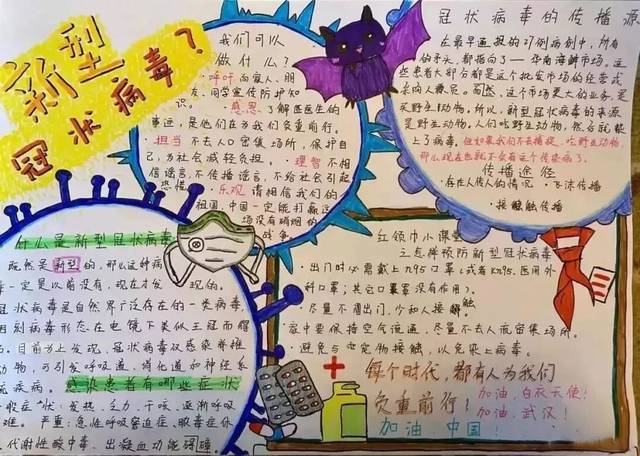 新型
冠状病毒？
我们可以
做什么？
呼吁而家人、朋
友、同学宣传防护知
识。感恩了解医医生的
事迹，是他们在为我们负重前行。
担当不去人口密集场所，保护自
己，为社会减轻负担。理智不相
信谣言，不传播谣言，不给社会引起
恐慌。乐观请相信我们的
祖国，中国一定能打赢这
场没有硝烟的
战争
冠状病毒的传播源
在最早通报的27例病例中，所有
的矛头，都指向了一华南海鲜市场。这
些患者大部分都是这个批发市场的经营或
采购人员。而然，这个市场更大的业务，是
买野生动物。所以，新型冠状病毒的来源
是野生动物。人们吃野生动物，然后就患
上了病毒。但如果我们不去捕捉、吃野生动物，
那么现在也就不会有这个传染病了。
传播途径
·存在人传人的情况 ·飞沫传播
·接触传播
什么是新型冠状病毒
既然是新型的，那么这种病
毒一定是以前没有，现在才发
现的。
冠状病毒是自然界广泛存在的一类病毒，
因刻病毒形态在电镜下类似王冠而
目前为止发现，冠状病毒仅感染脊椎
动物，可引发呼吸道、消化道和神经系
统疾病。感染患者有哪些症状
一般症状：发热、乏力、干咳、逐渐呼吸
困难。严重：急性呼吸窘迫症、脓毒症休
克、代谢性酸中毒、出凝血功能碍障。
红领巾小课堂
之怎样预防新型冠状病毒
·出门时必需戴上n95口罩（或者kn95、医用外
科口罩；其它口罩没有作用）。
·尽量不届出门，个和人接触
·家中要保持空气流通，尽量不去人流密集场所。
避免与宠物接触，以免染上病毒。
每个时代，都有人为我们
负重前行？
加油，白衣天使！
加油，武汉！
加油，中国！